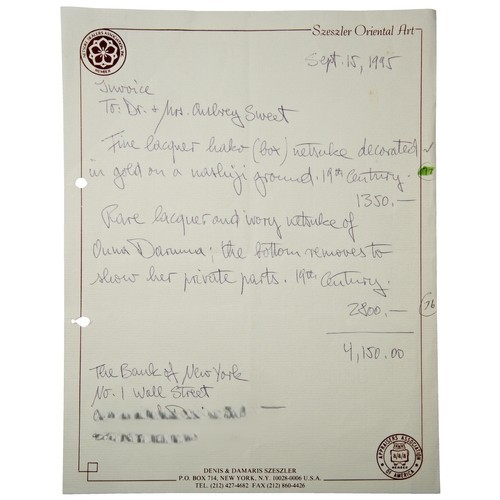 Szeszler Oriental Art
MEMBER
Sept. 15, 1995
Invoice
To: Dr. + Mrs. Aubrey Sweet
Fine lacquer hako (box) netsuke decorated
in gold on a nashiji ground. 19th Century.
1350.—
Rare lacquer and ivory netsuke of
Onna Daruma; the bottom removes to
show her private parts. 19th Century.
2800.— 76
4,150.00
The Bank of New York
No. 1 Wall Street
APPRAISERS ASSOCIATION
OF AMERICA
DENIS & DAMARIS SZESZLER
P.O. BOX 714, NEW YORK, N.Y. 10028-0006 U.S.A.
TEL. (212) 427-4682 FAX (212) 860-4426